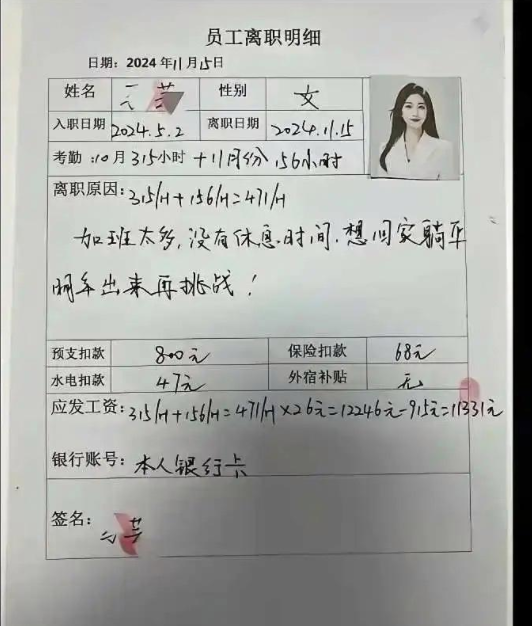 员工离职明细
日期：2024年11月15日
姓名 性别 女
入职日期 2024.5.2 离职日期 2024.11.15
考勤:10月315小时+11月份156小时
离职原因：315/H+156/H=471/H
加班太多，没有休息时间，想回家躺平
明年出来再挑战！
预支扣款 800元 保险扣款 68元
水电扣款 47元 外宿补贴 无
应发工资：315/H+156/H=471/H×26元=12246元-915元=11331元
银行账号：本人银行卡
签名：